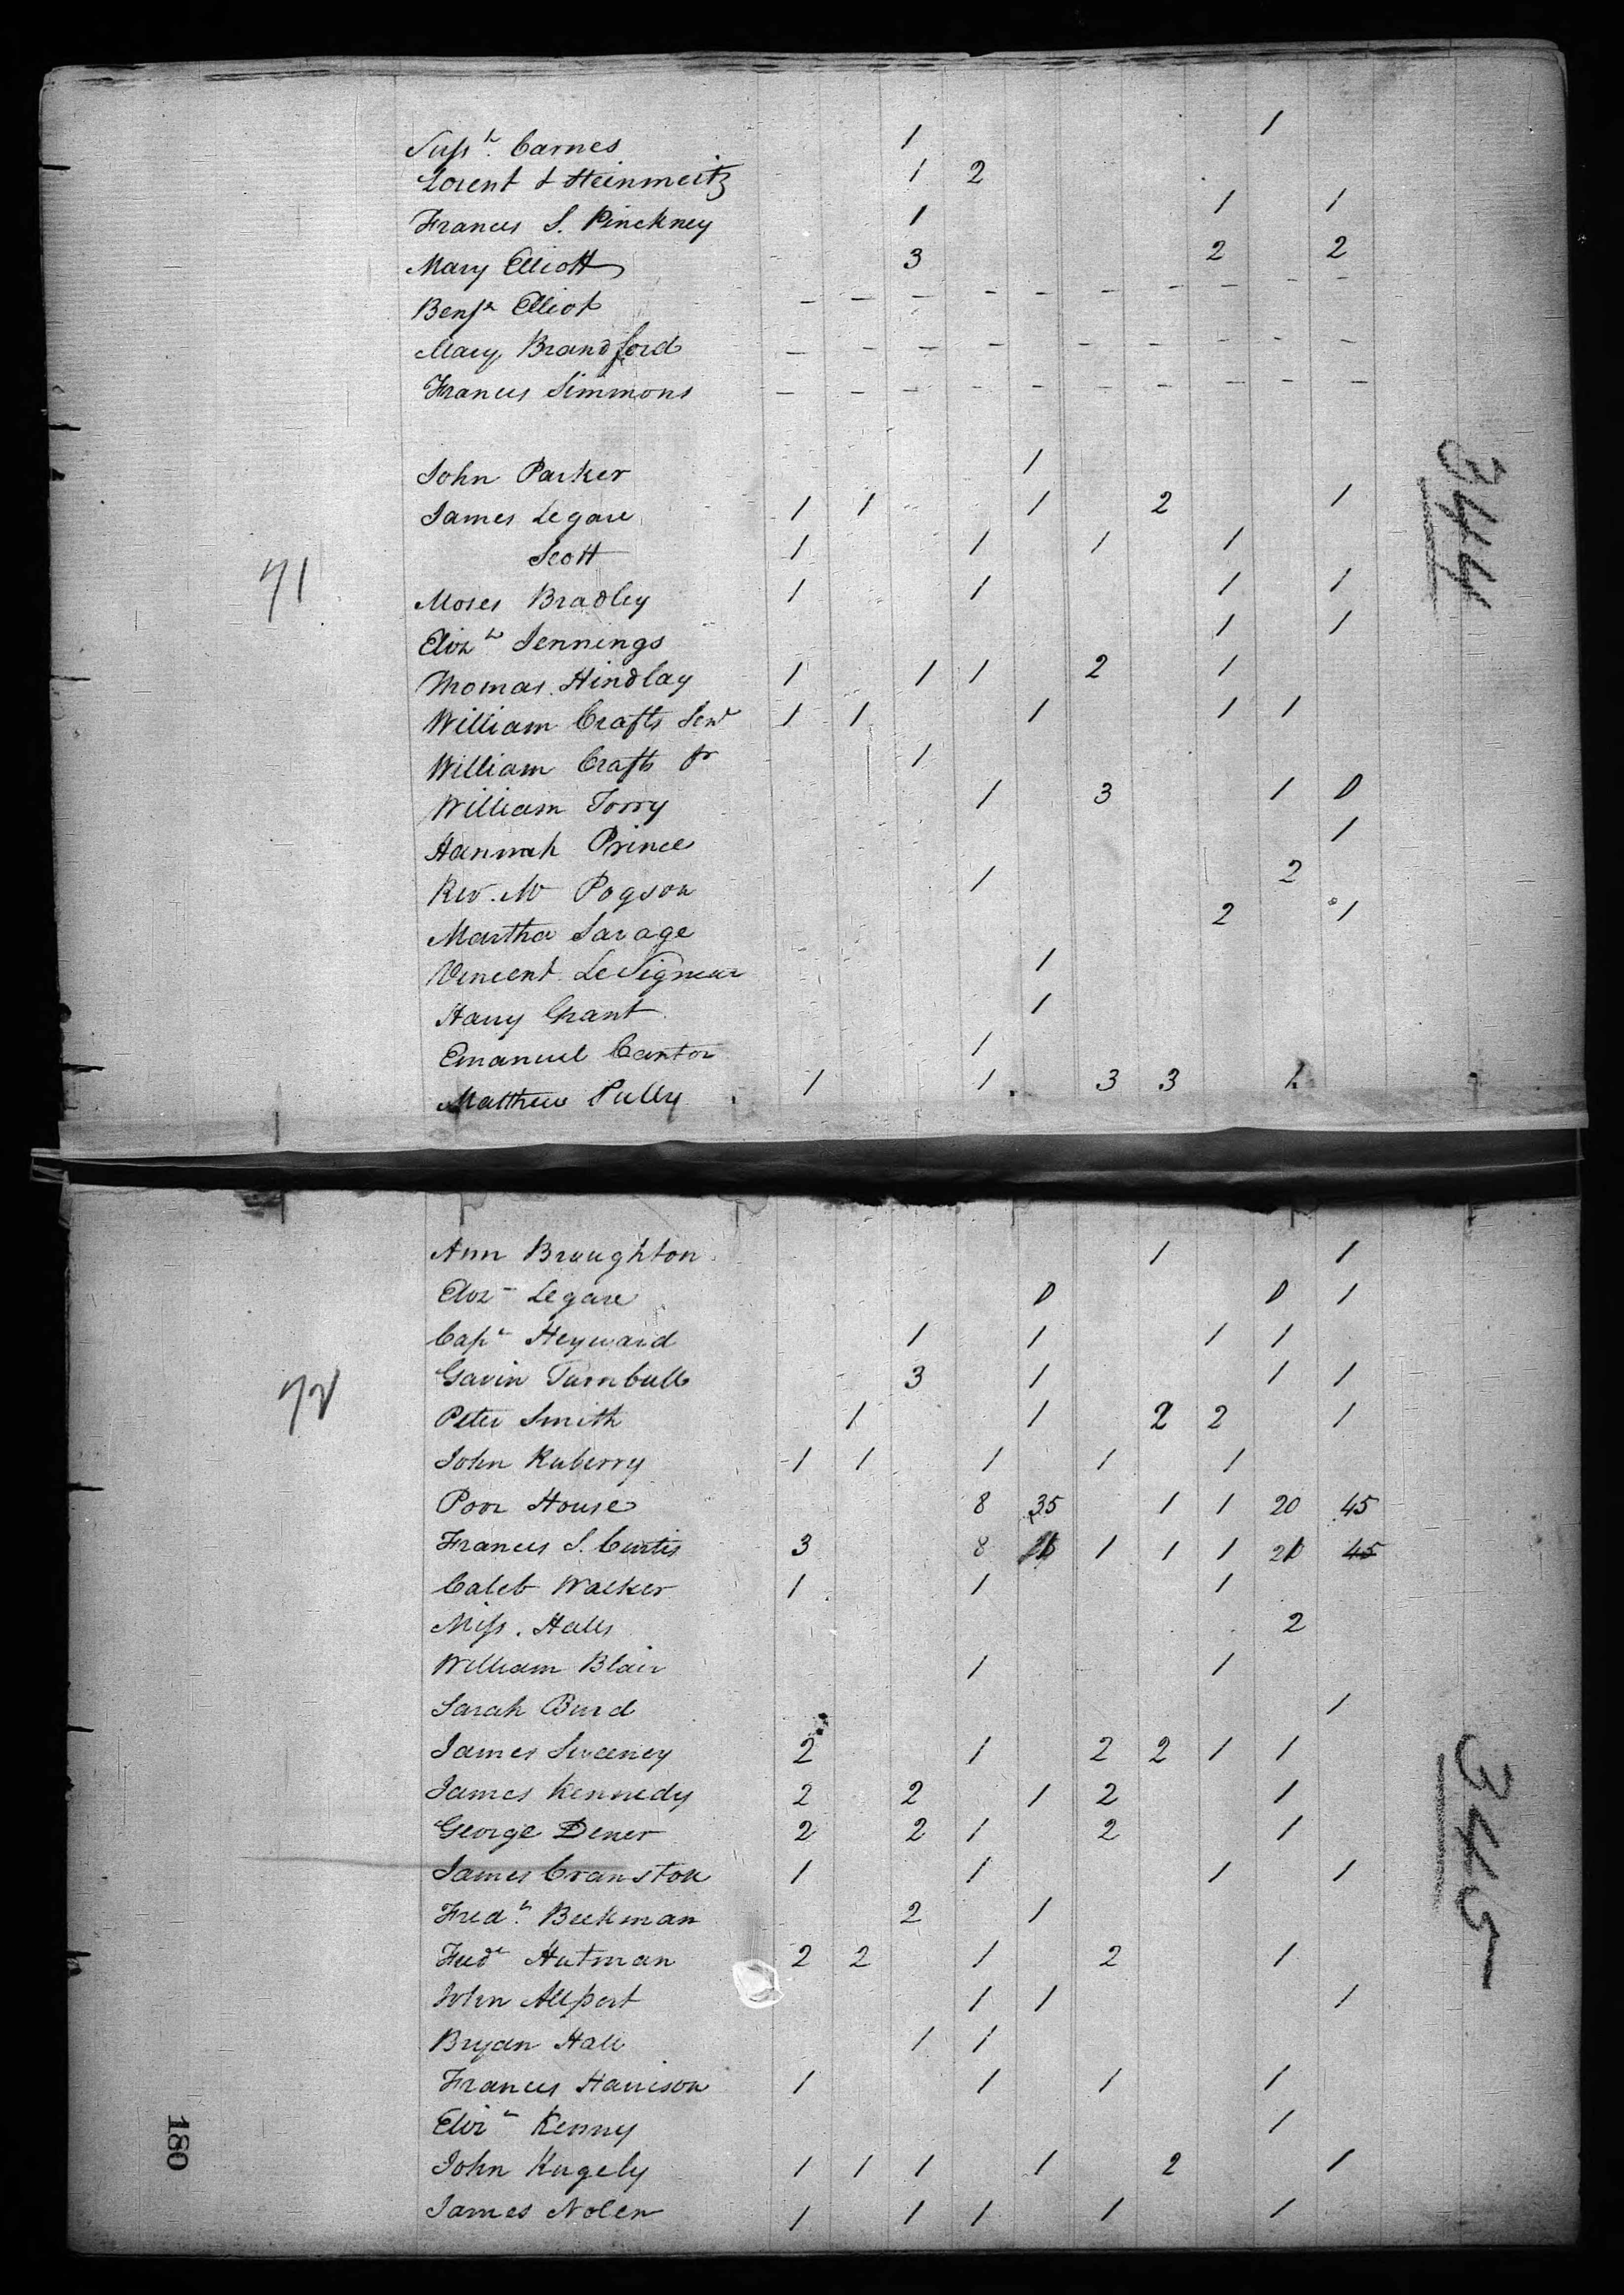 Sush. Carnes 1 1
Lorent & Steinmeitz 1 2
Frances S. Pinckney 1 1 1
Mary Elliott 3 2 2
Benjn Elliot - - - - - - - - - -
Mary Brandford - - - - - - - - - -
Francis Simmons - - - - - - - - - -
344
John Parker 1
James Legare 1 1 1 2 1
Scott 1 1 1 1
71
Moses Bradley 1 1 1 1
Elizh Jennings 1 1
Thomas Hindlay 1 1 1 2 1
William Crafts Senr 1 1 1 1 1
William Crafts Jr 1
William Torry 1 3 1 0
Hannah Prince 1
Rev. Mr Pogson 1 2
Martha Savage 2 1
Vincent LeSigneur 1
Harry Grant 1
Emanuel Cantor 1
Matthew Pully 1 1 3 3 1
Ann Braughton 1 1
Eliz Legare 0 0 1
Capt Heyward 1 1 1 1
Gavin Turnbull 3 1 1 1
72
Peter Smith 1 1 2 2 1
John Ruberry 1 1 1 1 1
Poor House 8 35 1 1 20 45
Francis S. Curtis 3 8 1 1 1 45
Caleb Walker 1 1 1
Miss. Halls 2
William Blair 1 1
Sarah Burd 1
345
James Sweeney 2 1 2 2 1 1
James Kennedy 2 2 1 2 1
George Dener 2 2 1 2 1
James Cranston 1 1 1 1
Fredk. Beekman 2 1
Fredk Hutman 2 2 1 2 1
John Allport 1 1 1
Bryan Hall 1 1
Francis Harrison 1 1 1 1
Elizh Kenny 1
180
John Kugely 1 1 1 1 2 1
James Nolen 1 1 1 1 1